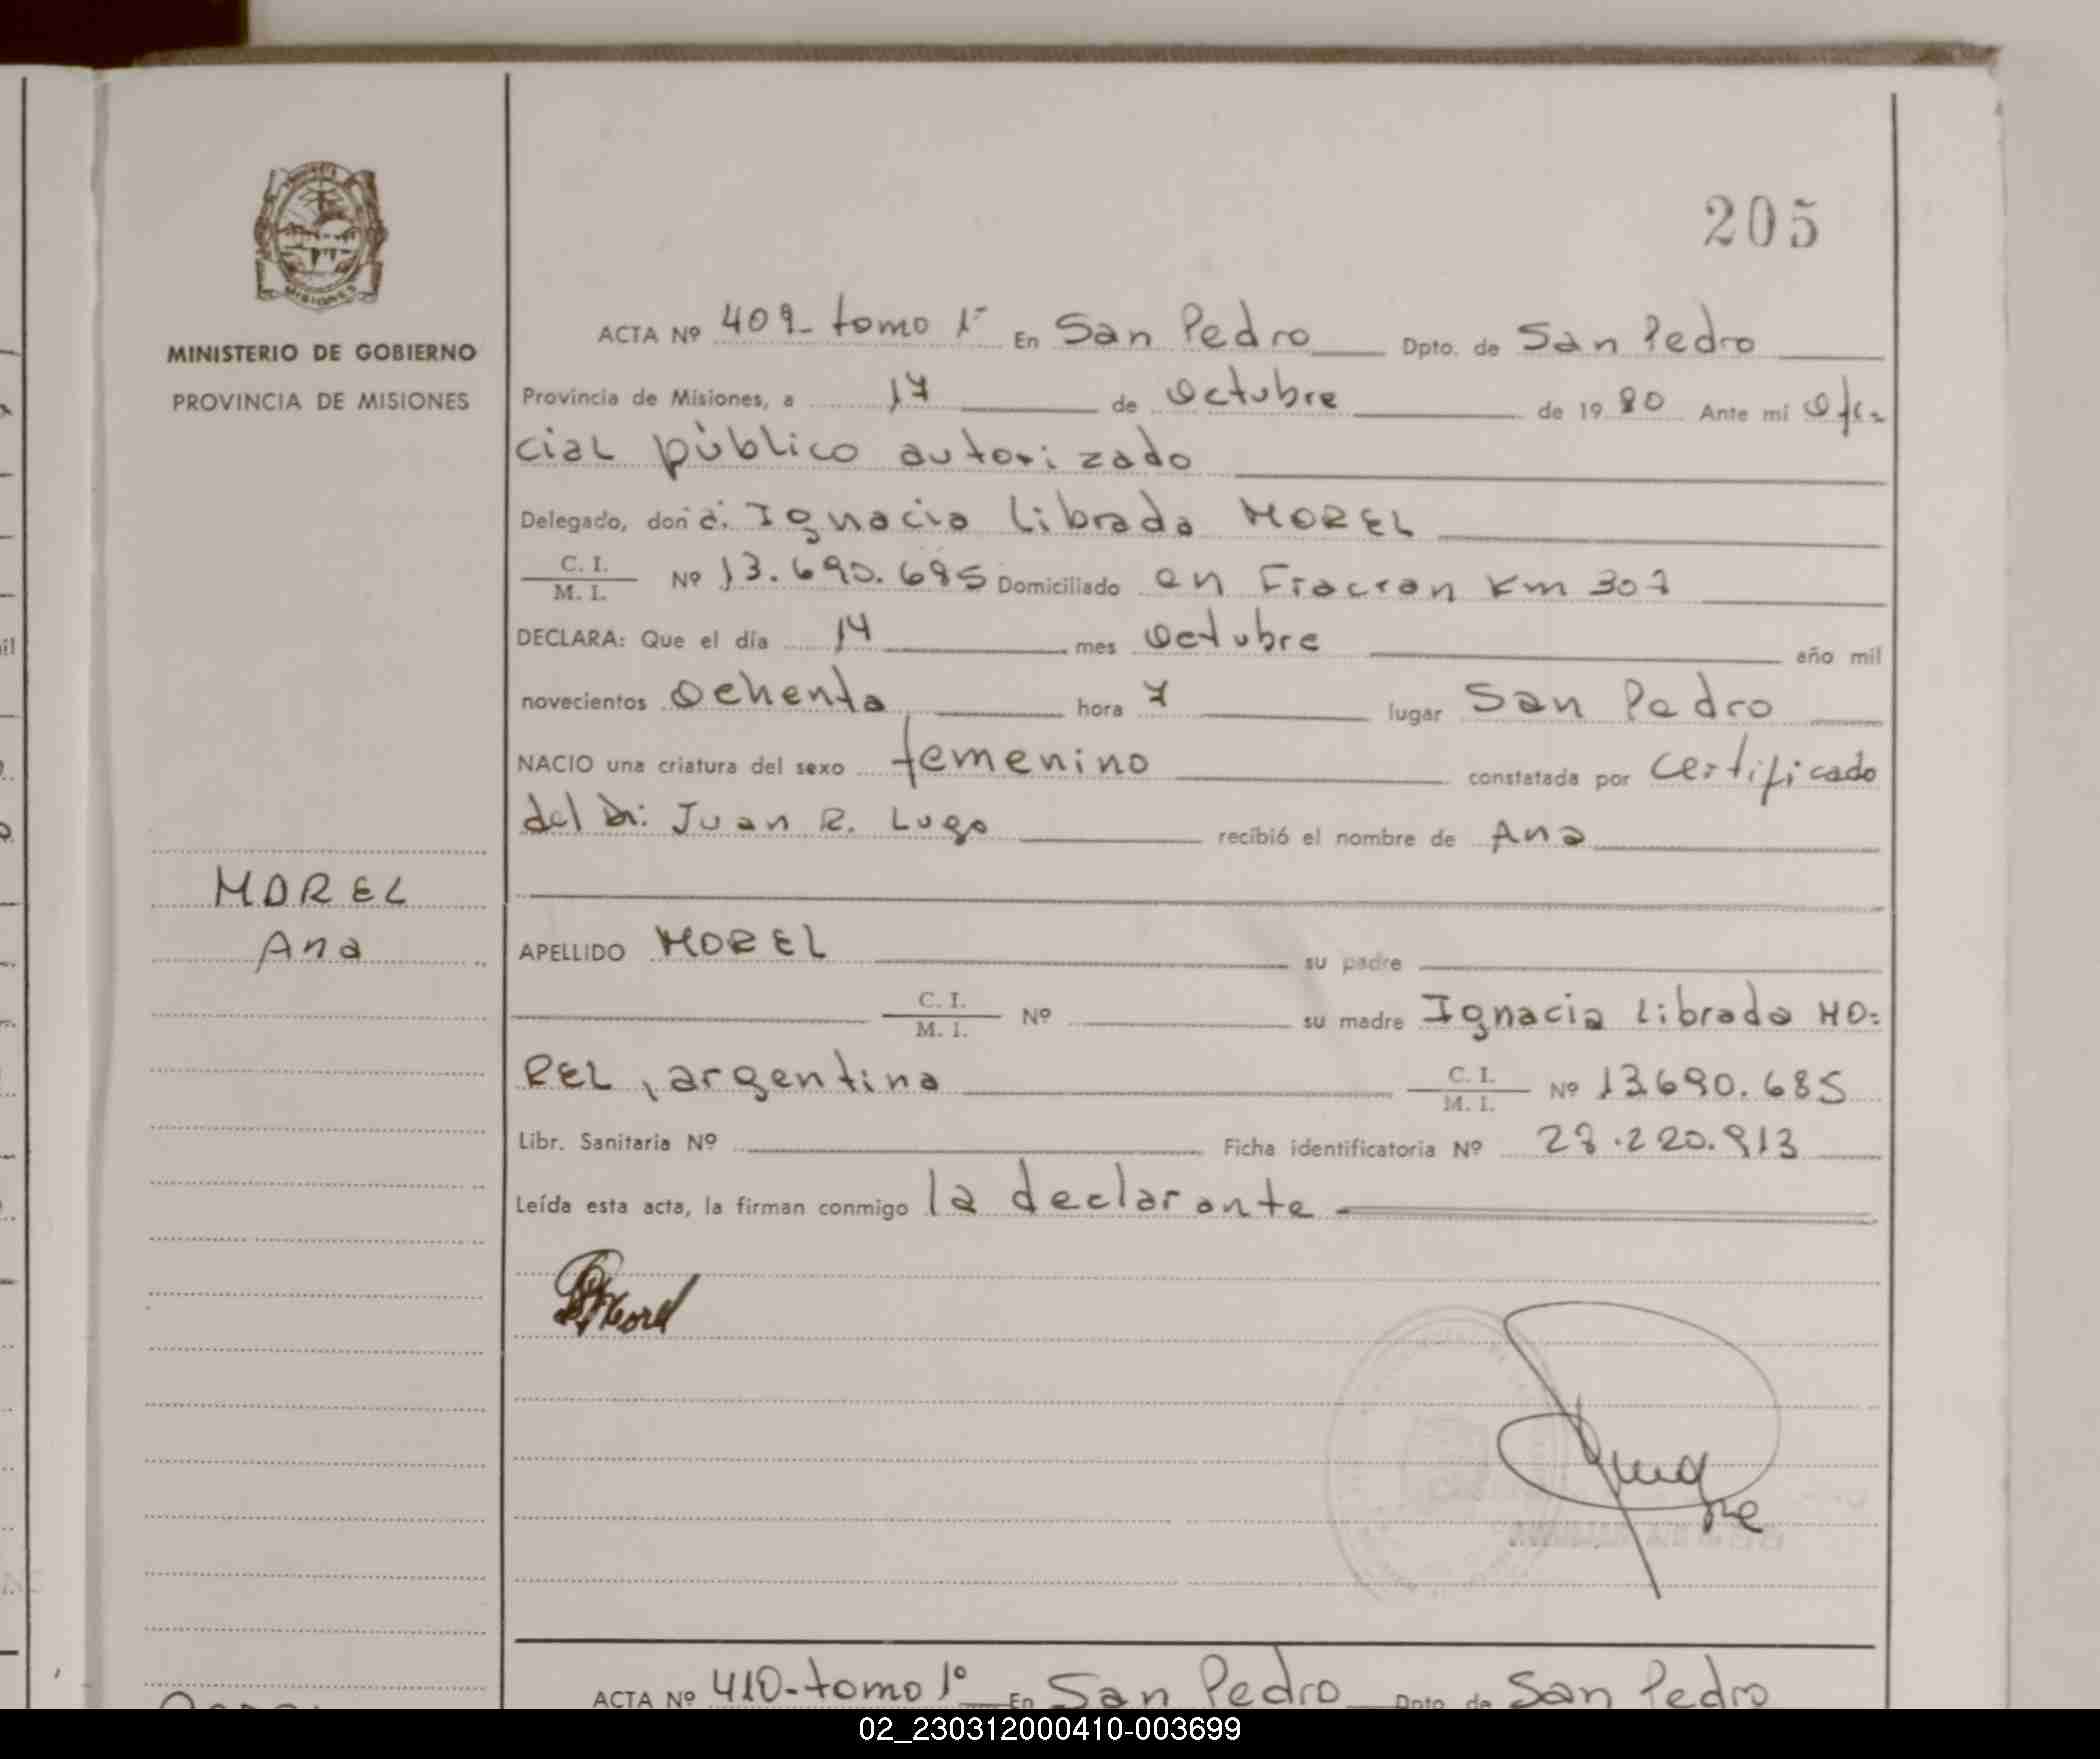 205
MINISTERIO DE GOBIERNO
PROVINCIA DE MISIONES
MISIONES
MOREL
Ana
ACTA Nº 409- tomo 1º En San Pedro Dpto. de San Pedro
Provincia de Misiones, a 17 de Octubre de 1980 Ante mi Ofi-
cial público autorizado
Delegado, don a. Ignacia Librada MOREL
C. I. / M. I. Nº 13.690.685 Domiciliado en Fracran Km 307
DECLARA: Que el día 14 mes Octubre año mil
novecientos Ochenta hora 7 lugar San Pedro
NACIO una criatura del sexo femenino constatada por Certificado
del Dr: Juan R. Lugo recibió el nombre de Ana
APELLIDO MOREL su padre
C. I. / M. I. Nº su madre Ignacia Librada MO=
REL, argentina C. I. / M. I. Nº 13.690.685
Libr. Sanitaria Nº Ficha identificatoria Nº 28.220.913
Leída esta acta, la firman conmigo la declarante
Morel
ACTA Nº 410-tomo 1º En San Pedro Dpto. de San Pedro
02_230312000410-003699